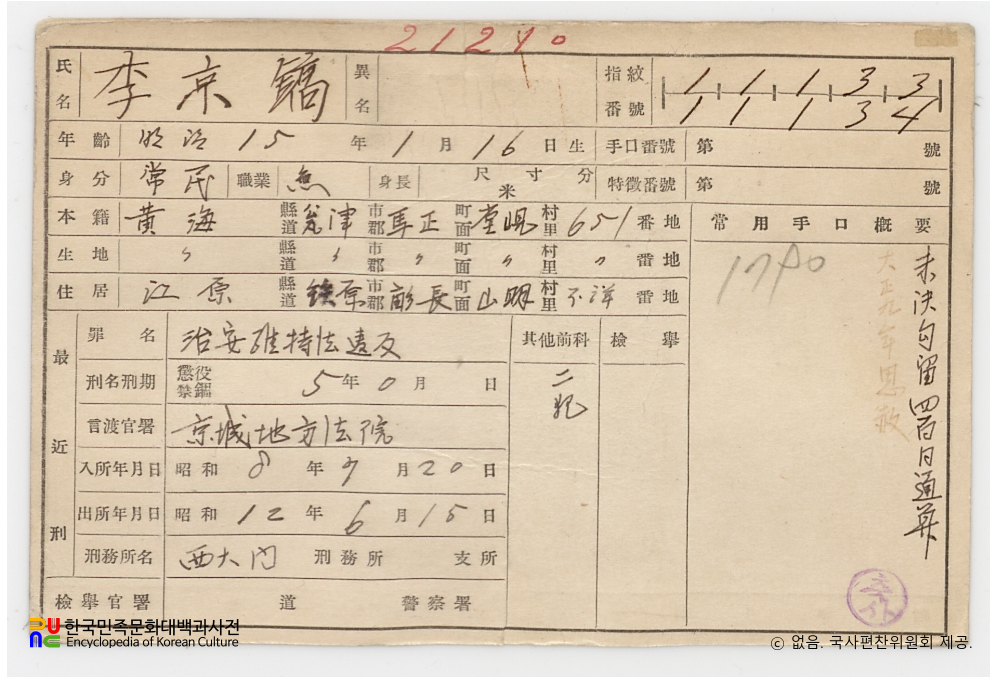 21240
氏名 李京鎬 異名 指紋番號 1 1 1 3 3
1 1 1 3 4
年齡 明治15年1月16日生 手口番號 第 號
身分 常民 職業 無 身長 尺寸分 米 特徵番號 第 號
本籍 黃海 縣道 瓮津 市郡 馬正 町面 堂峴 村里 651 番地
生地 〃 縣道 〃 市郡 〃 町面 〃 村里 〃 番地
住居 江原 縣道 鐵原 市郡 畝長 町面 山明 村里 不詳 番地
常用手口槪要
未決勾留四百日通算
大正九年恩赦
最近刑
罪名 治安維持法違反
刑名刑期 懲役 禁錮 5年0月 日
言渡官署 京城地方法院
入所年月日 昭和8年9月20日
出所年月日 昭和12年6月15日
刑務所名 西大門 刑務所 支所
其他前科 檢擧
二犯
檢擧官署 道 警察署
한국민족문화대백과사전
Encyclopedia of Korean Culture
ⓒ 없음. 국사편찬위원회 제공.